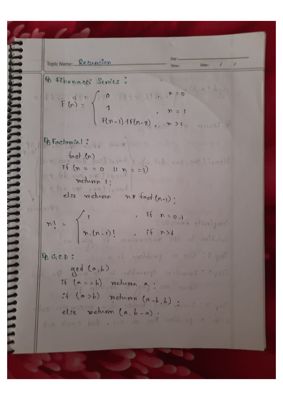 Topic Name: Recursion
Day:
Time: Date: / /
Q) Fibonacci Series :
F(n) = { 0 , n = 0
1 , n = 1
F(n-1)+F(n-2) , n > 1
Q) Factorial :
fact (n)
if (n == 0 || n == 1)
return 1;
else return n * fact(n-1);
n! = { 1 , if n = 0,1
n.(n-1)! , if n>1
Q) G.C.D :
gcd (a,b)
if (a == b) return a;
if (a > b) return (a-b, b) ;
else return (a, b-a) ;